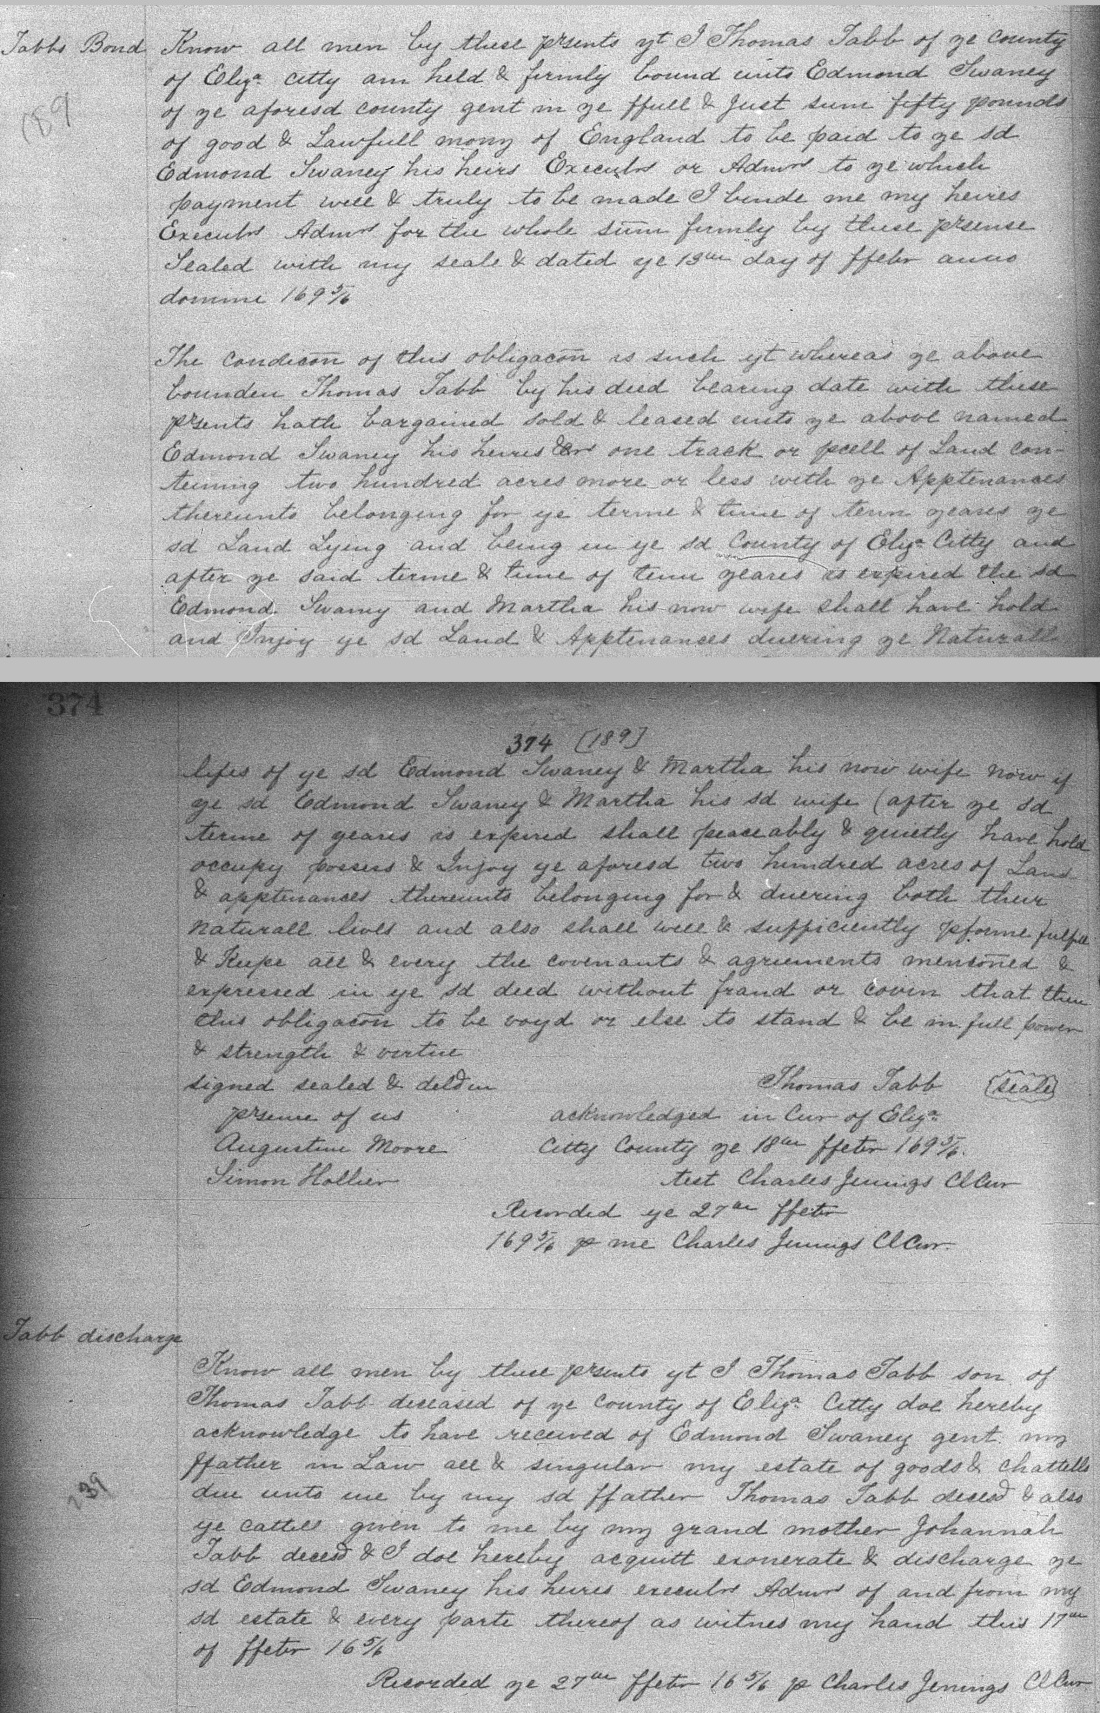 Tabbs Bond
189
Know all men by these prsents yt I Thomas Tabb of ye county
of Eliza. Citty am held & firmly bound unto Edmond Swaney
of ye aforesd county gent in ye ffull & Just sum fifty pounds
of good & Lawfull mony of England to be paid to ye sd
Edmond Swaney his heirs Executrs or Admrs to ye which
payment well & truly to be made I binde me my heires
Executrs Admrs for the whole sum firmly by these prsense
Sealed with my seale & dated ye 13th day of ffebr anno
domini 169 5/6
The condicon of this obligacon is such yt whereas ye above
bounden Thomas Tabb by his deed bearing date with these
prsents hath bargained sold & leased unto ye above named
Edmond Swaney his heires &c one track or pcell of Land con-
teining two hundred acres more or less with ye Apptenances
thereunto belonging for ye terme & time of tenn yeares ye
sd Land Lying and being in ye sd County of Eliza. Citty and
after ye said terme & time of tenn yeares is expired the sd
Edmond Swaney and Martha his now wife shall have hold
and Injoy ye sd Land & Apptenances duering ye Naturall
374
374 [189]
lifes of ye sd Edmond Swaney & Martha his now wife now if
ye sd Edmond Swaney & Martha his sd wife (after ye sd
terme of yeares is expired shall peaceably & quietly have hold
occupy possess & Injoy ye aforesd two hundred acres of Land
& apptenances thereunto belonging for & duering both their
naturall lives and also shall well & sufficiently pforme fulfill
& Keepe all & every the covenants & agreements mencioned &
expressed in ye sd deed without fraud or covin that then
this obligacon to be voyd or else to stand & be in full power
& strength & virtue
signed sealed & deld in
prsence of us
Augustine Moore
Simon Hollier
Thomas Tabb (seale)
acknowledged in Cur of Eliza
Citty County ye 18th ffebr 169 5/6.
test Charles Jenings ClCur
Recorded ye 27th ffebr
169 5/6 p me Charles Jenings ClCur.
Tabb discharge
239
Know all men by these prsents yt I Thomas Tabb son of
Thomas Tabb deceased of ye county of Eliza. Citty doe hereby
acknowledge to have received of Edmond Swaney gent. my
ffather in Law all & singular my estate of goods & chattells
due unto me by my sd ffather Thomas Tabb decesd & also
ye cattell given to me by my grand mother Johannah
Tabb decesd & I doe hereby acquitt exonerate & discharge ye
sd Edmond Swaney his heires executrs Admrs of and from my
sd estate & every parte thereof as witnes my hand this 17th
of ffebr 16 5/6
Recorded ye 27th ffebr 16 5/6 p Charles Jenings ClCur